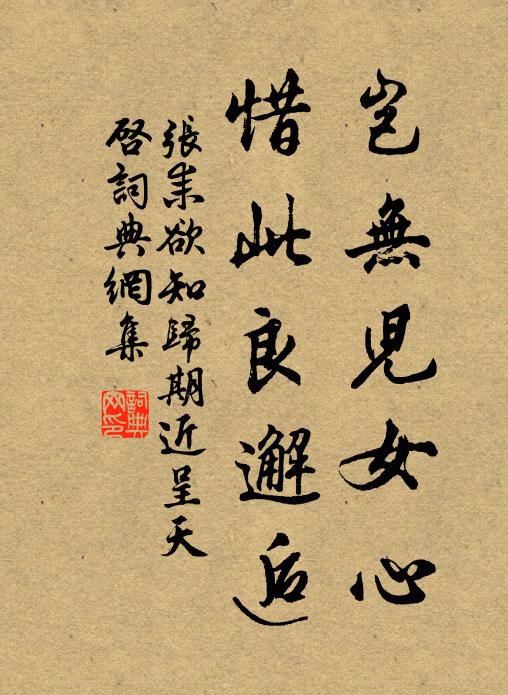 豈無兒女心
惜此良邂逅
張耒欲知歸期近呈天
啓詞典網集
詞典
网印